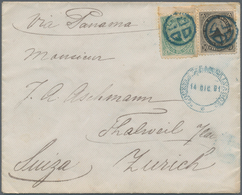 Via Panama
Monsieur
J. A. Aschmann
Thalweil
Suiza Zurich
14 DIC. 91